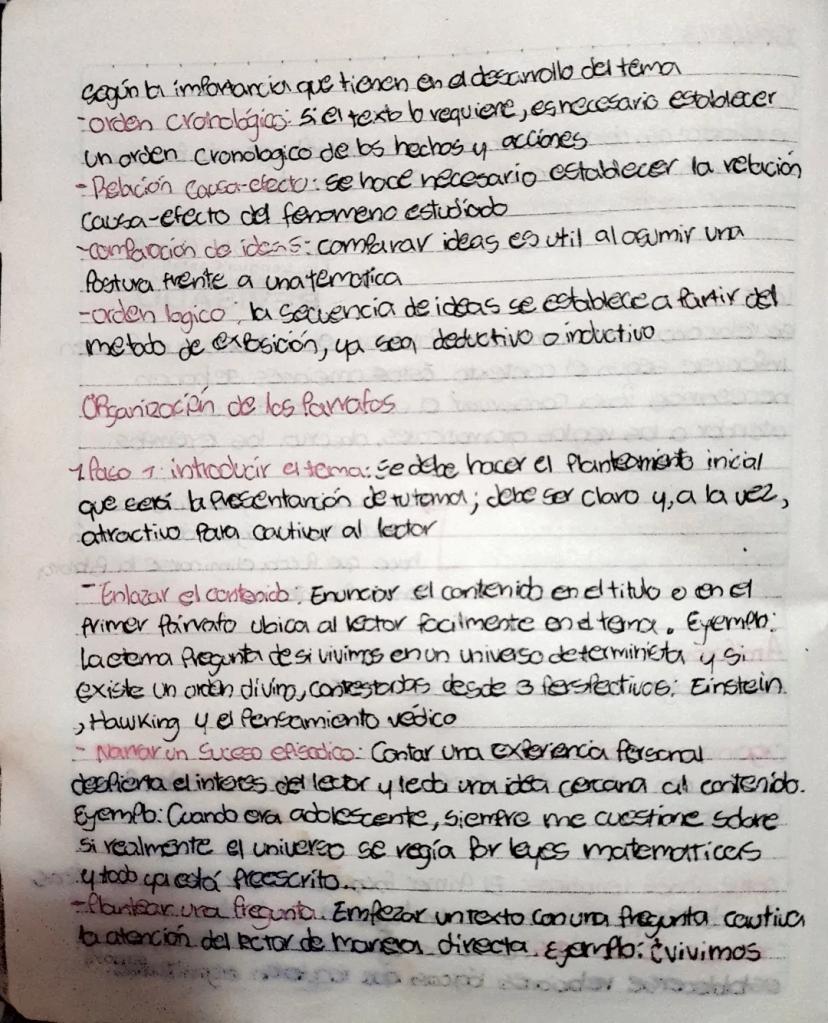 según la importancia que tienen en el desarrollo del tema
-orden cronológico: si el texto lo requiere, es necesario establecer
un orden cronologico de los hechos y acciones
-Relación causa-efecto: se hace necesario establecer la relación
causa-efecto del fenomeno estudiado
-comparación de ideas: comparar ideas es util al asumir una
Postura frente a una tematica
-orden logico: la secuencia de ideas se establece a Partir del
metodo de exposición, ya sea deductivo o inductivo
Organización de los Parrafos
1 Paso 1: introducir el tema: se debe hacer el Planteamiento inicial
que será la Presentanción de tu tema; debe ser claro y, a la vez,
atractivo Para cautivar al lector
- Enlazar el contenido: Enunciar el contenido en el titulo o en el
Primer Párrafo ubica al lector facilmente en el tema. Eyemplo:
La eterna Pregunta de si vivimos en un universo determinista y si
existe un orden divino, contestarlos desde 3 Perspectivas: Einstein
, Hawking y el Pensamiento vedico
- Narrar un Suceso episodico: Contar una experiencia Personal
despierta el interes del lector y le da una idea cercana al contenido.
Eyemplo: Cuando era adolescente, siempre me cuestione sobre
si realmente el universo se regía Por leyes matematricas
y todo ya está Preescrito...
-Plantear una Pregunta. Empezar un texto con una Pregunta cautiva
la atención del lector de manera directa. Ejemplo: ¿vivimos